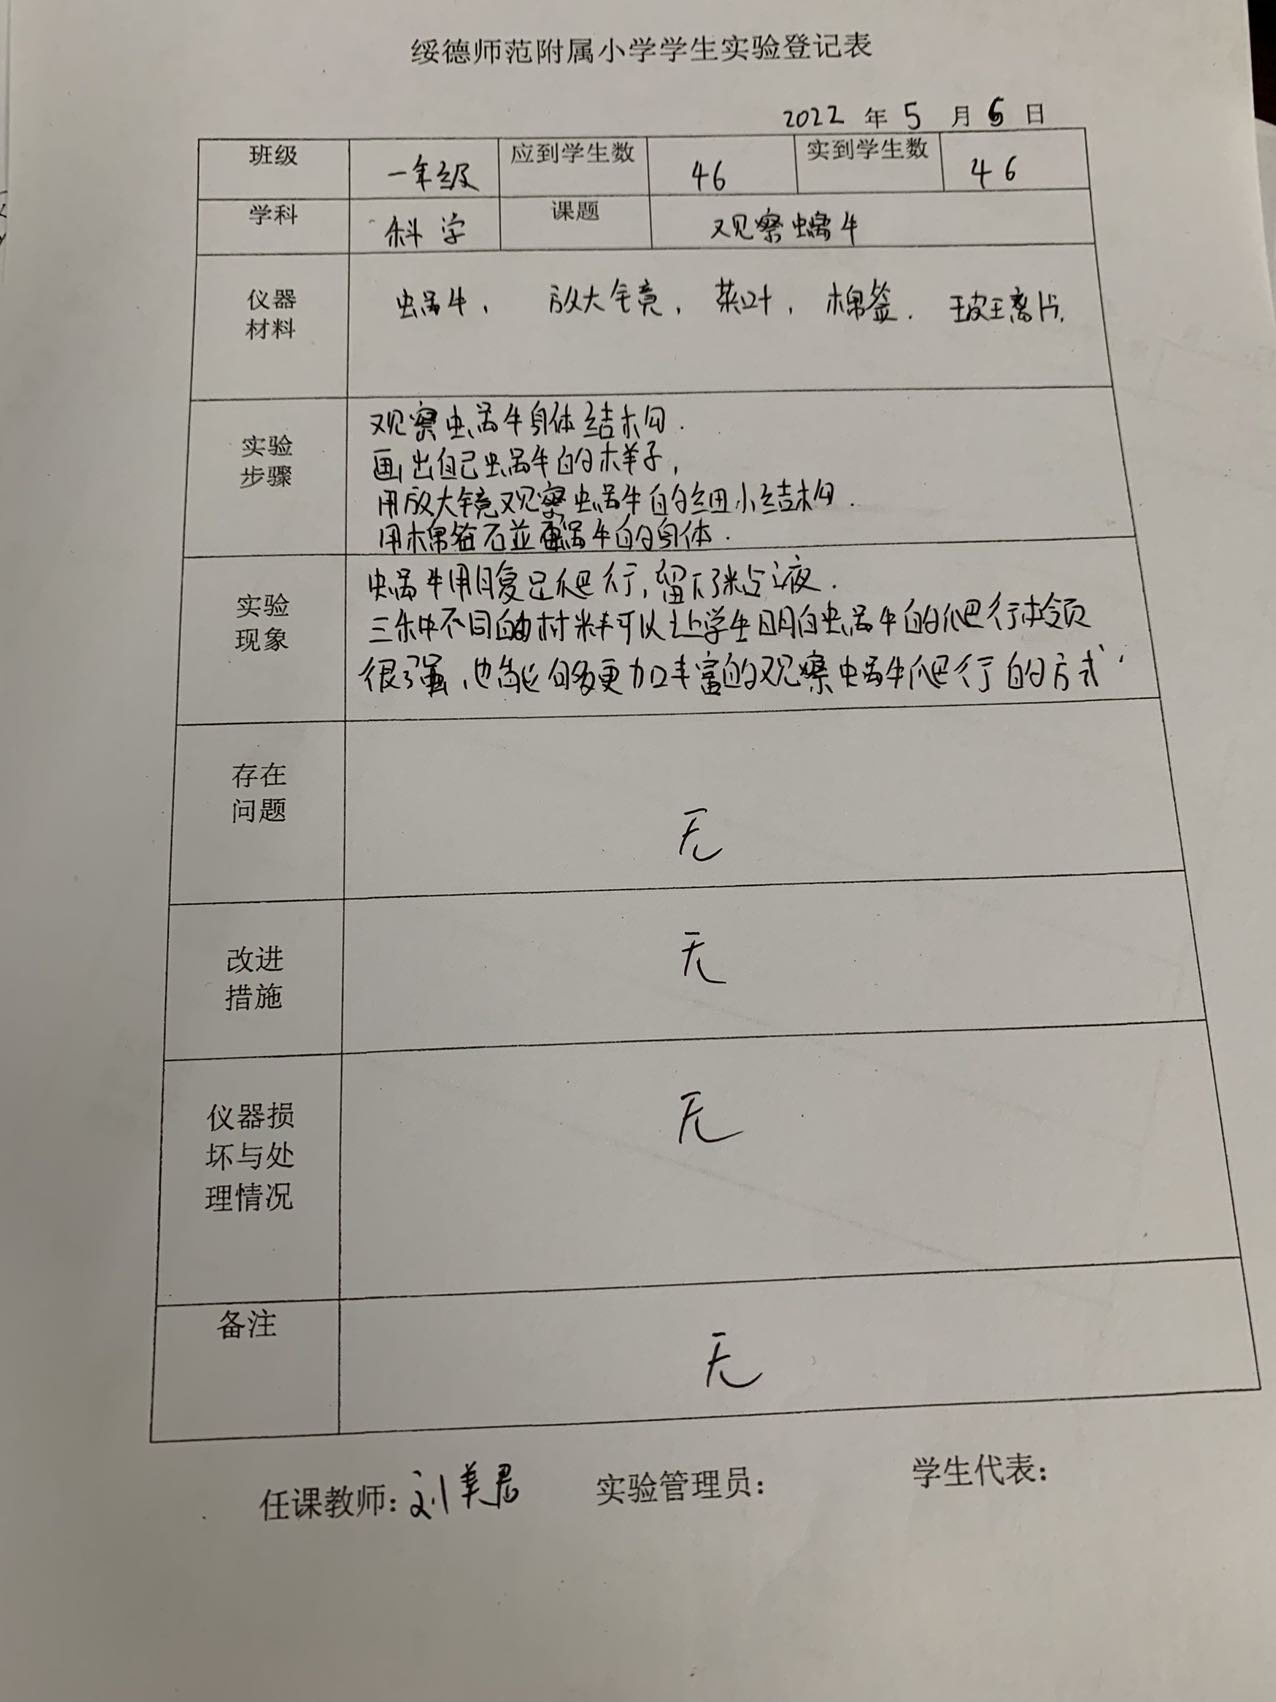 绥德师范附属小学学生实验登记表
2022 年 5 月 6 日
班级 一年级 应到学生数 46 实到学生数 46
学科 科学 课题 观察蜗牛
仪器材料 蜗牛, 放大镜, 菜叶, 棉签. 玻璃片.
实验
步骤
观察蜗牛身体结构.
画出自己蜗牛的样子,
用放大镜观察蜗牛的细小结构.
用棉签石並蜗牛的身体.
实验
现象
蜗牛用腹足爬行,留下了粘液.
三种不同的材料可以让学生明白蜗牛的爬行本领
很强,也能够更加丰富的观察蜗牛爬行的方式.
存在
问题
无
改进
措施
无
仪器损
坏与处
理情况
无
备注
无
任课教师:刘美君 实验管理员: 学生代表: